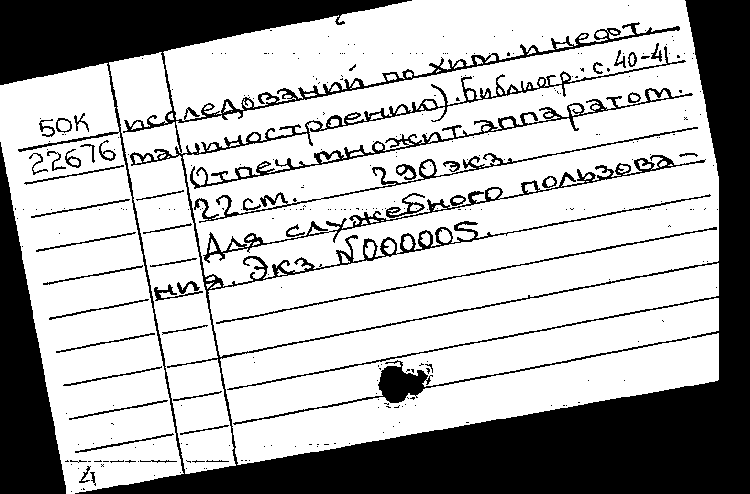 исследований по хим. и нефт.
БОК
22676
машиностроению). Библиогр.: с. 40-41.
Отпеч. множит. аппаратом.
22 см. 290 экз.
Для служебного пользова-
ния. Экз. N000005.
4